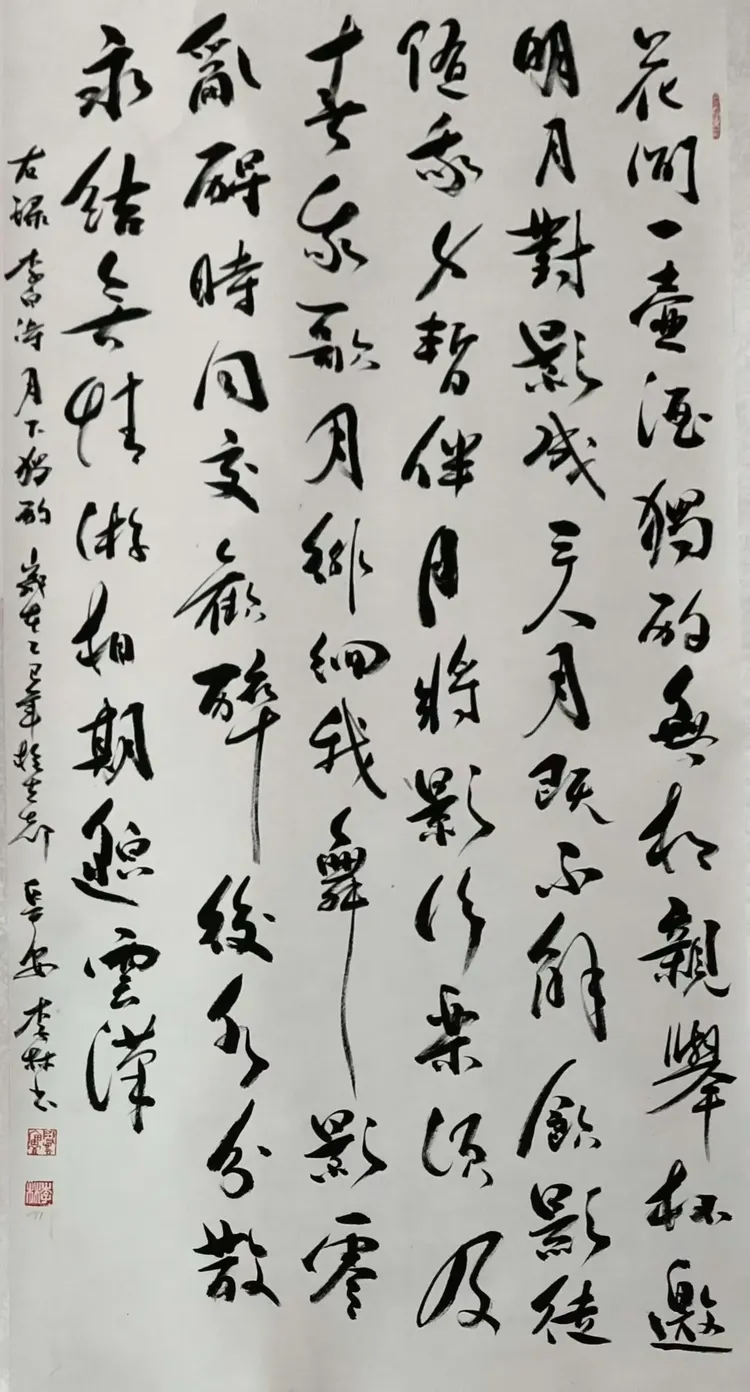 花間一壺酒獨酌無相親舉杯邀
明月對影成三人月既不解飲影徒
隨我身暫伴月將影行樂須及
春我歌月徘徊我舞影零
亂醒時同交歡醉後各分散
永結無情游相期邈雲漢
右録李白詩月下獨酌歲在乙巳年於古都長安李林书
李林